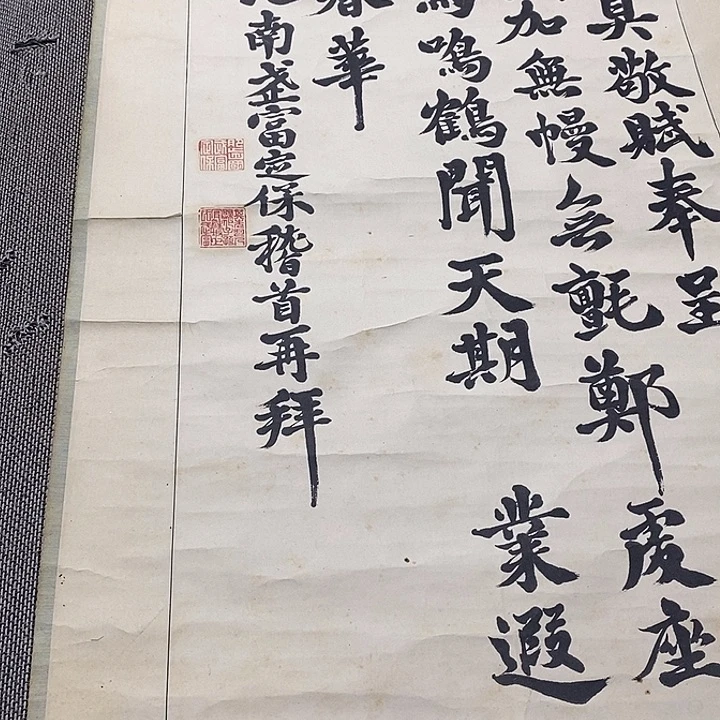 具敬賦奉呈
加無幔無氈鄭虔座
鳴鶴聞天期業遐
春華
南富定保稽首再拜